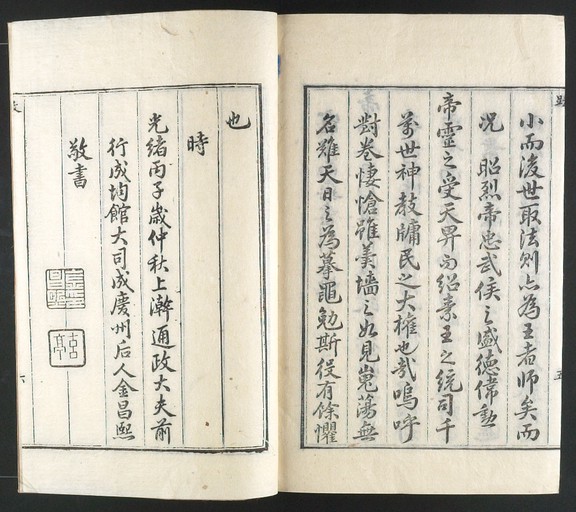 小而後世取法則亦為王者師矣而
況　昭烈帝忠武侯之盛德偉勳
帝靈之受天畀而紹素王之統司千
萬世神教牖民之大權也哉嗚呼
對卷悽愴雖羹墻之如見嵬蕩無
名難天日之為摹黽勉斯役有餘懼
五
也
時
光緒丙子歲仲秋上澣通政大夫前
行成均館大司成慶州后人金昌熙
敬書
六